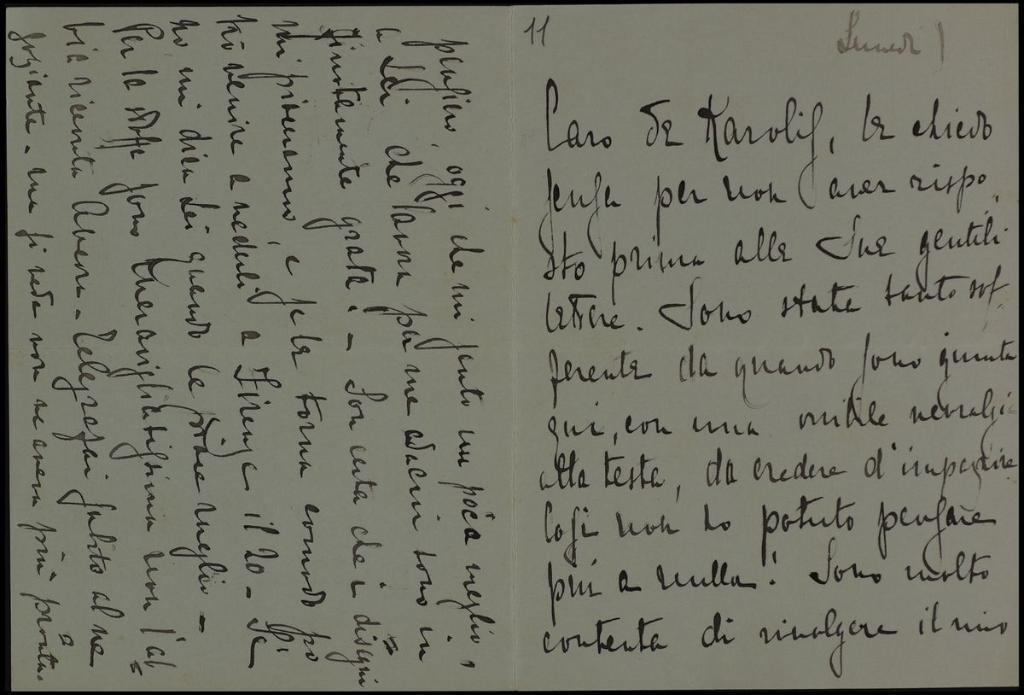 11
Lunedì
Caro De Karolis, le chiedo
scusa per non aver rispo
sto prima alle Sue gentili
lettere. Sono stata tanto sof
ferente da quando sono giunta
qui, con una nevralgia
alla testa, da credere d'impazzire
Così non ho potuto pensare
più a nulla! Sono molto
contenta di rivolgere il mio
pensiero, oggi che mi sento un poco meglio,
a Lei che lavora per me ed a cui sono in
finitamente grata. - Son certa che i disegni
mi piaceranno e se le torna comodo po
trò venire a vederli a Firenze il 20 - Se
no mi dica Lei quando le meglio -
Per la stoffa sono meravigliatissima non l'ab
bia ricevuta ancora - Telegrafai subito al ne
goziante - ma si vede non ne aveva più pronta.